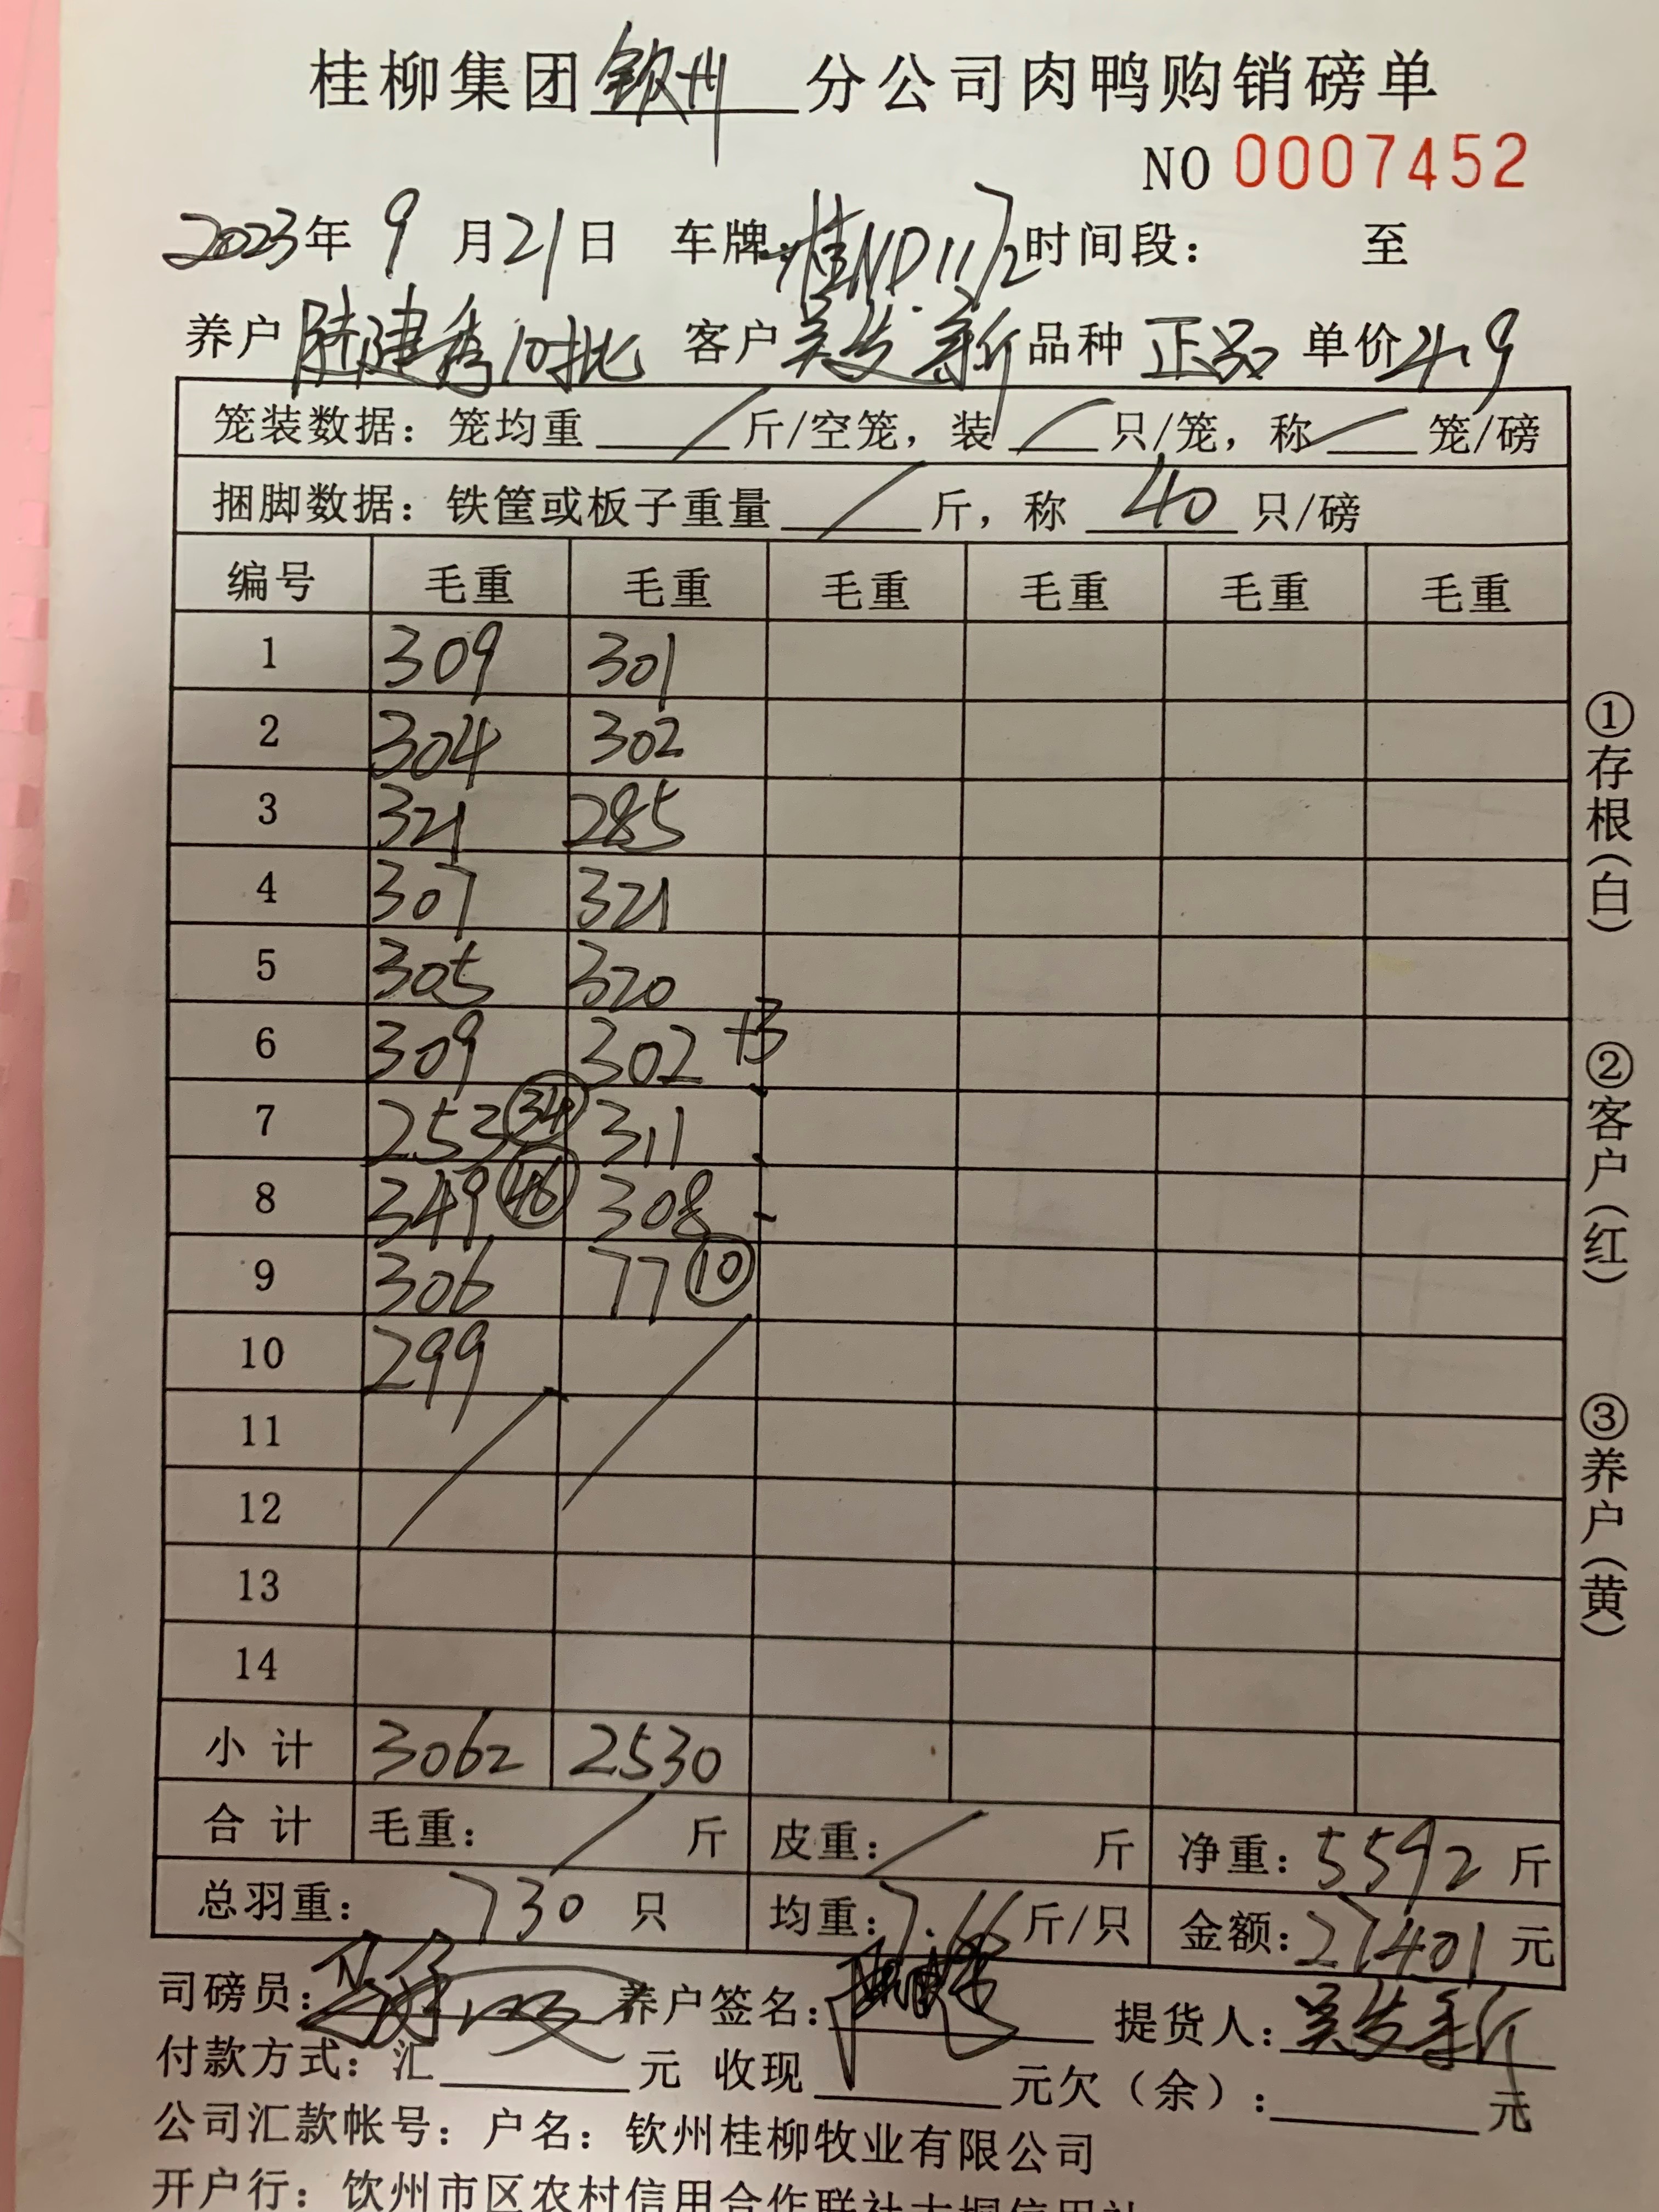 桂柳集团钦州分公司肉鸭购销磅单
NO 0007452
2023年 9 月21日 车牌:桂ND1172时间段: 至
养户 陆建秀10批 客户 吴发新 品种 正品 单价 4.9
笼装数据：笼均重 / 斤/空笼，装 / 只/笼，称 / 笼/磅
捆脚数据：铁筐或板子重量 / 斤，称 40 只/磅
编号 毛重 毛重 毛重 毛重 毛重 毛重
1 309 301
2 304 302
3 321 285
4 307 321
5 305 320
6 309 302 +3
7 253 34 311
8 349 46 308
9 306 77 10
10 299
11
12
13
14
小 计 3062 2530
合 计 毛重: / 斤 皮重: / 斤 净重: 5592 斤
总羽重: 730 只 均重: 7.66 斤/只 金额: 27401 元
司磅员: 养户签名: 提货人: 吴发新
付款方式: 汇 元 收现 元欠（余）: 元
公司汇款帐号: 户名: 钦州桂柳牧业有限公司
开户行: 钦州市区农村信用合作联社大垌信用社
①存根(白)
②客户(红)
③养户(黄)